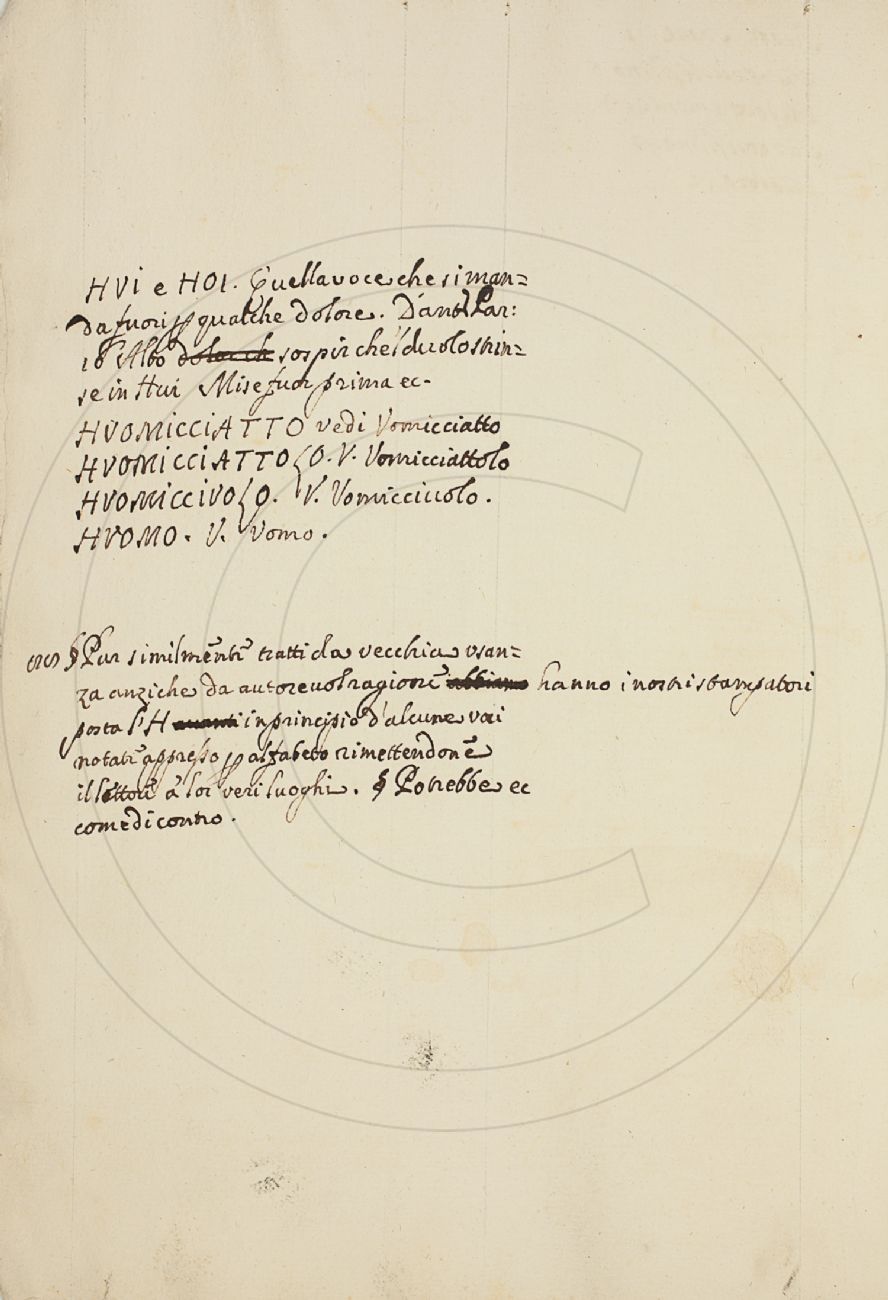 HVI e HOI. Quella voce che si man=
da fuori p qualche dolore. Dant. Par:
16 Alto dolor ch sospir che'l duolo strin=
se in Hui Mise fuor prima ec.
HVOMICCIATTO vedi Vomicciatto
HVOMICCIATTOLO. V. Vomicciattolo
HVOMICCIVOLO. V. Vomicciuolo.
HVOMO. V. Vomo.
§ Pur similmẽntẽ tratti da vecchia vsan=
za anzi che da autoreuol ragionẽ abbiamo hanno i nostri stampatori
posta l'H auanti in principio d'alcune voci
notatẽ appresso p alfabeto rimettendonẽ
il lettorẽ a' lor veri luoghi. § Potrebbe ec
come di contro.